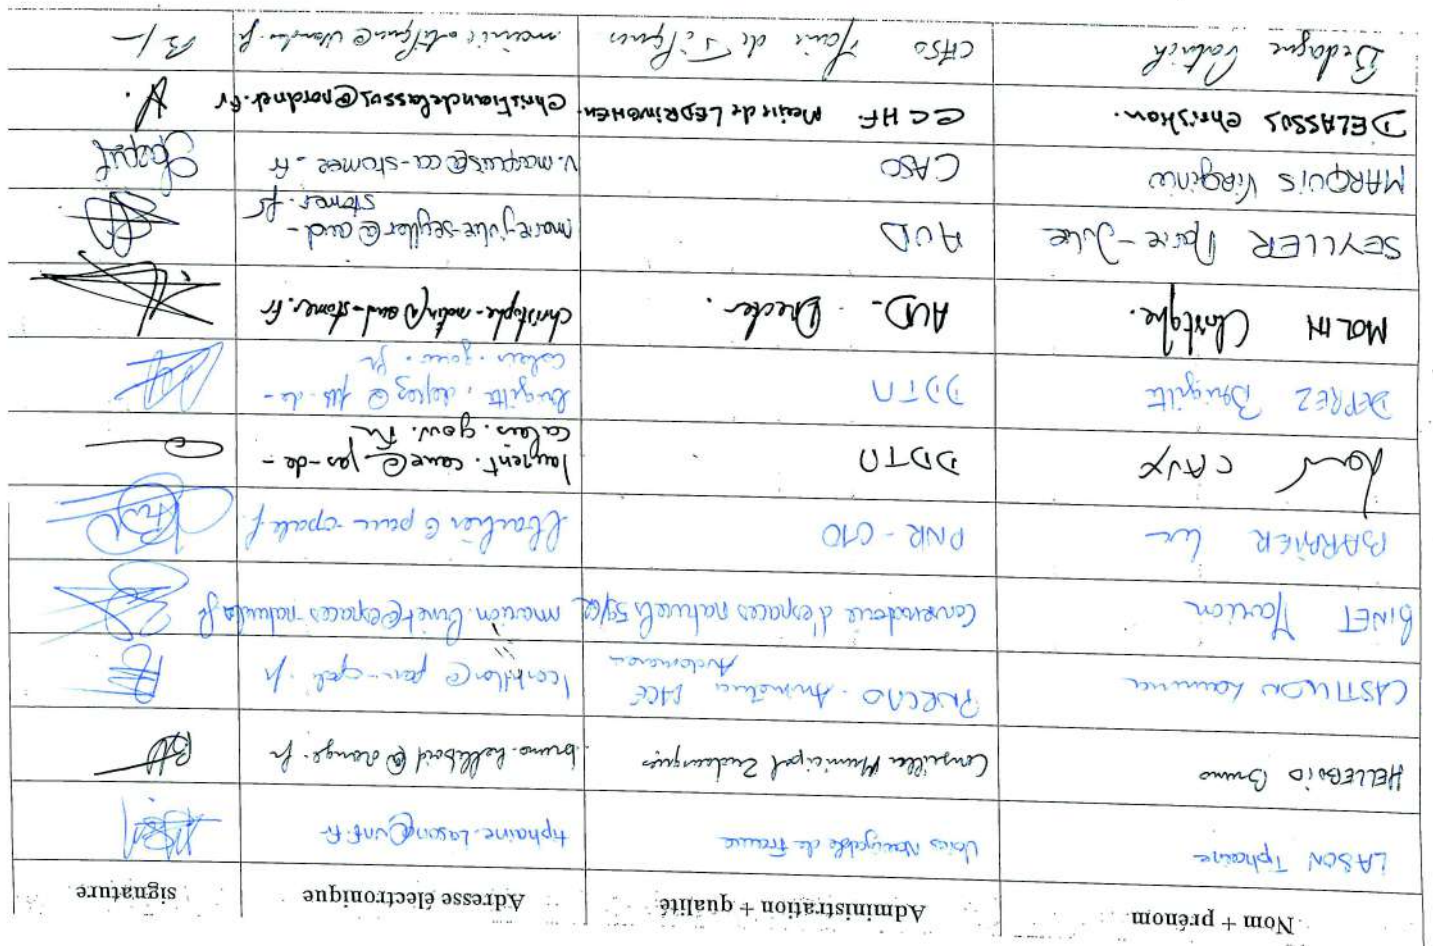 Nom + prénom Administration + qualité Adresse électronique signature
LASON Tiphaine Voies Navigable de France tiphaine.lason@vnf.fr
HELLEBOID Bruno Conseiller Municipal Zudausques bruno.helleboid@orange.fr
CASTILLON Laurence PNRCMO - Animatrice
Audomarois
BINET Marion Conservatoire d'espaces naturels 59/62 marion.binet@espaces-naturels.fr
BARRIER Luc PNR-CMO lbarbier@parc-opale.fr
CAUX DDTM laurent.caux@pas-de-
calais.gouv.fr
DEPREZ Brigitte DDTM brigitte.deprez@pas-de-
calais.gouv.fr
MOLIN Christophe. AUD - Directeur. christophe-molin@aud-stomer.fr
SEYLLER Marie-Julie AUD marie-julie-seyller@aud-
stomer.fr
MARQUIS Virginie CASO v.marquis@ca-stomer.fr
DELASSUS Christian. CCHF Mairie de LEDRINGHEM christiandelassus@nordnet.fr
Bedague Patrick CASO Mairie de Tilques